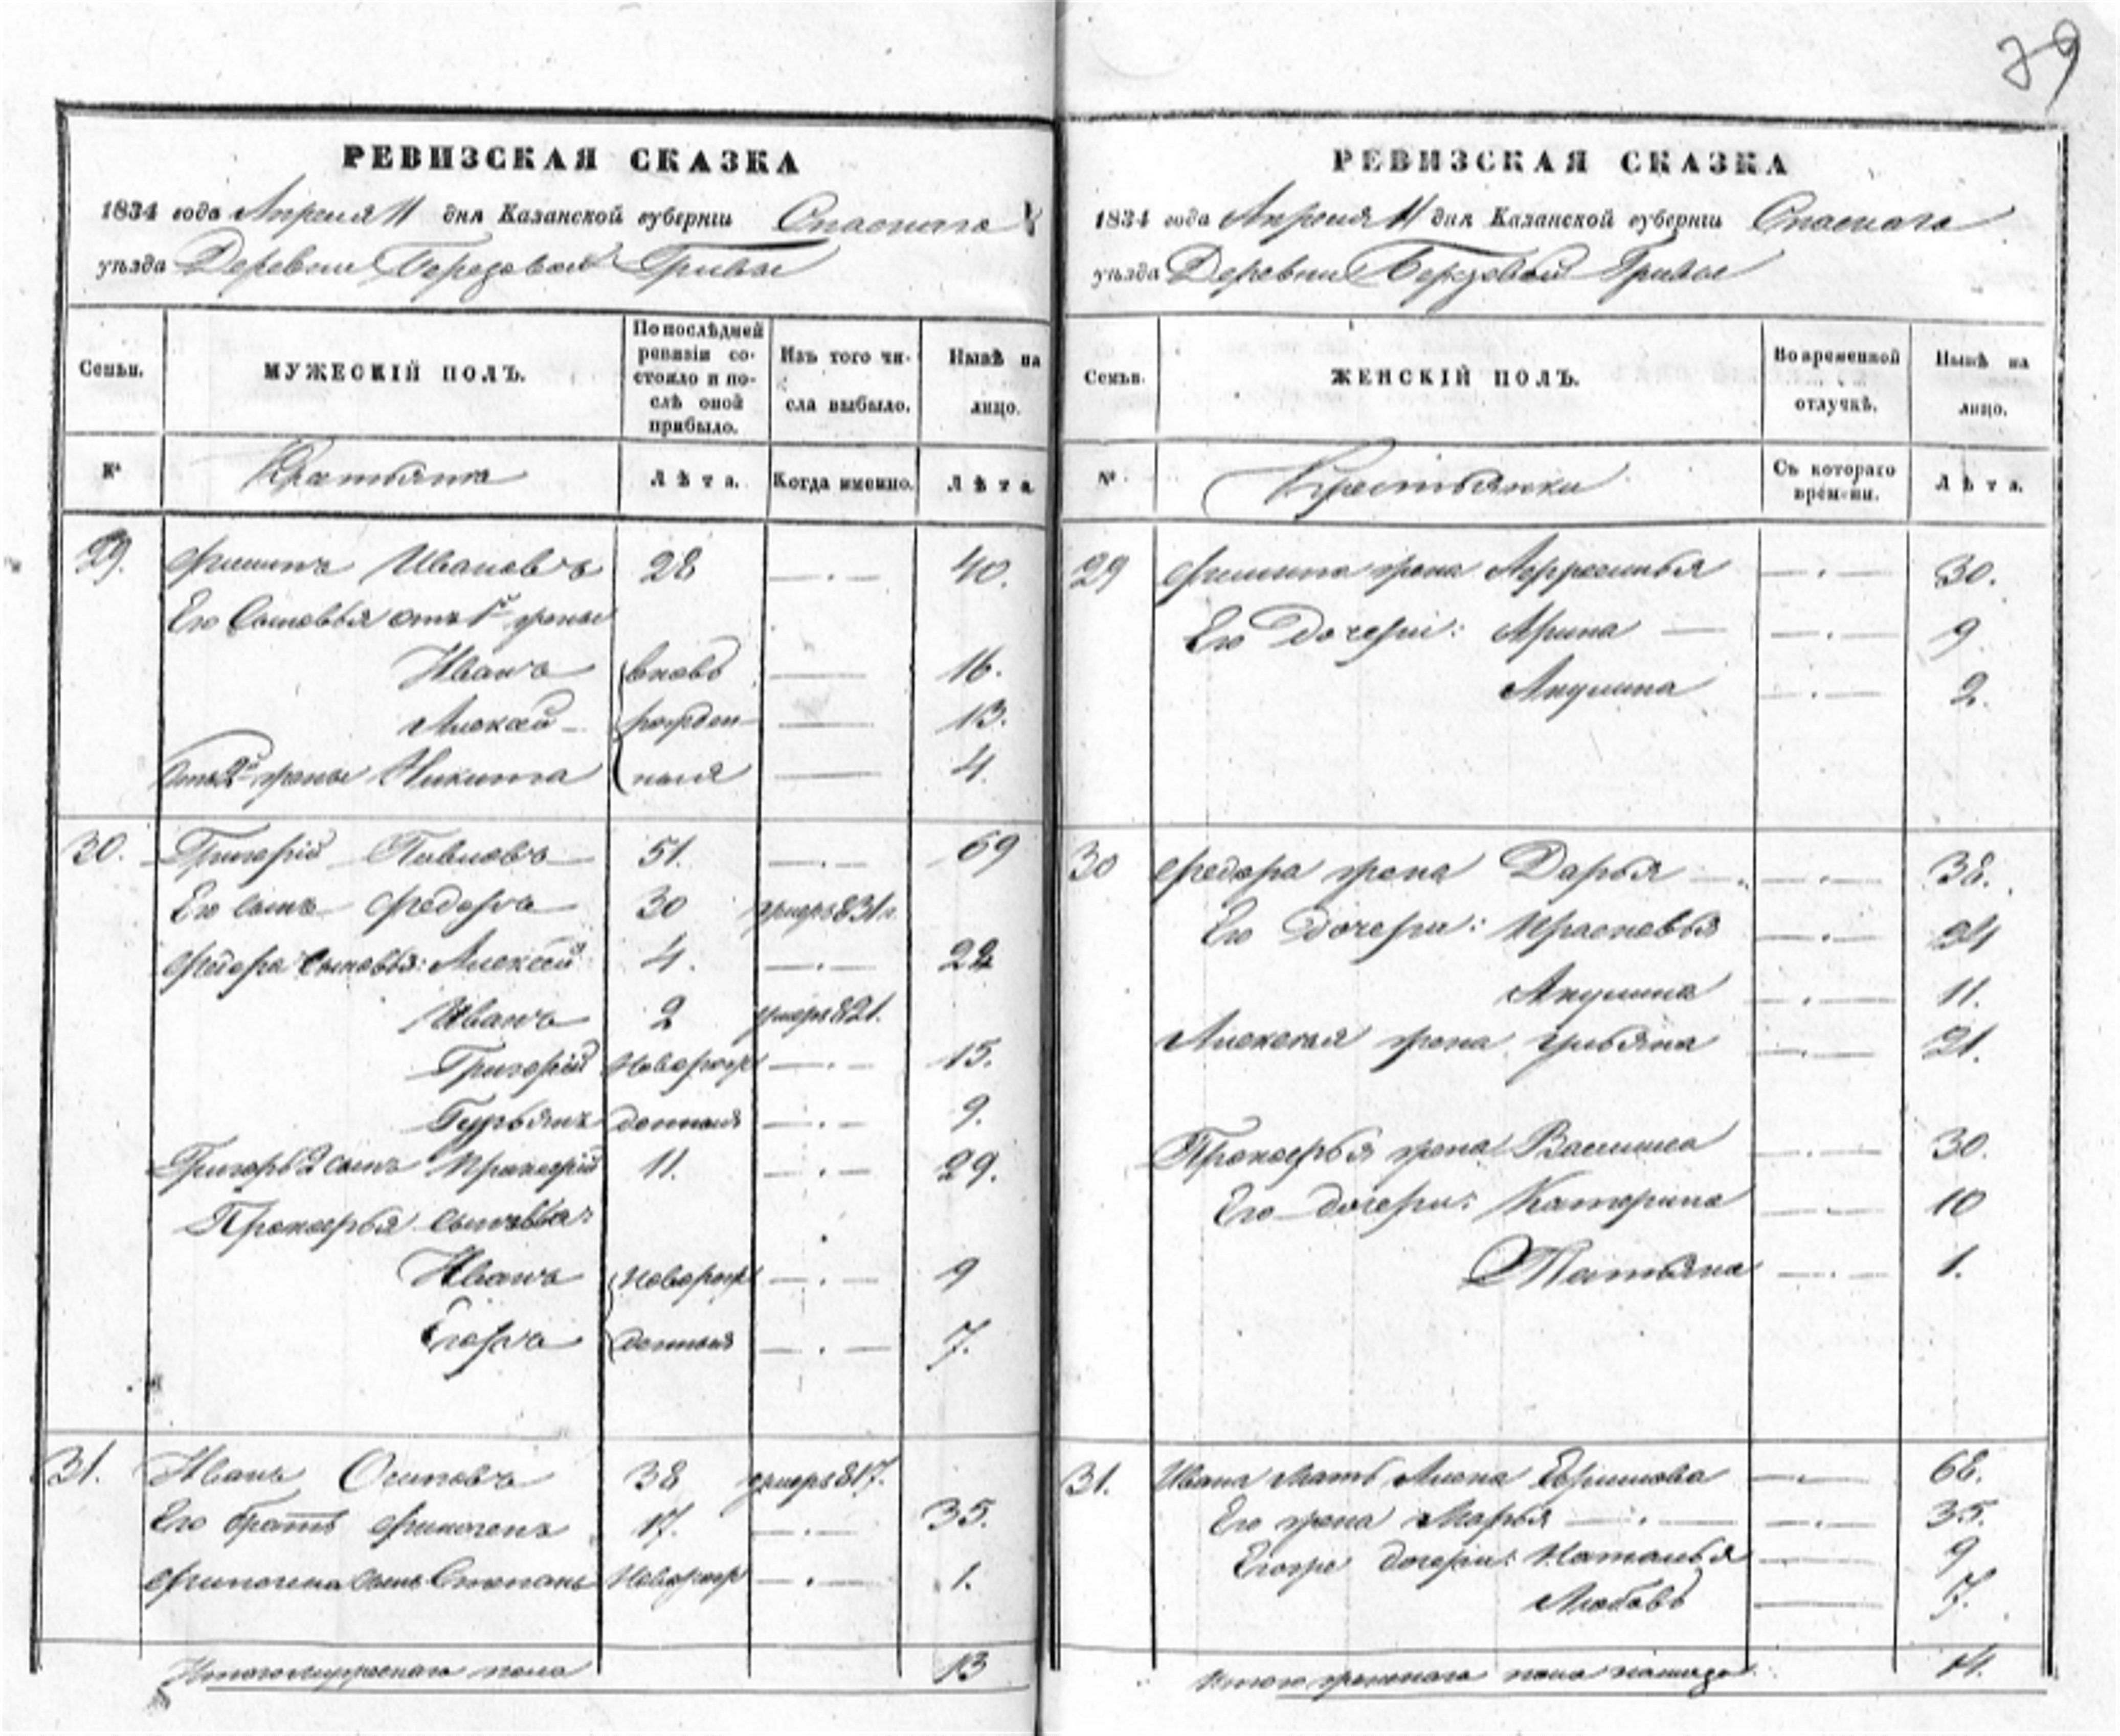 79
РЕВИЗСКАЯ СКАЗКА
1834 года Апреля 11 дня Казанской губерніи Спаскаго
уѣзда Деревни Березовой Гривы
Семьи.
МУЖЕСКІЙ ПОЛЪ.
По послѣдней ревизіи состояло и послѣ оной прибыло.
Изъ того числа выбыло.
Нынѣ на лицо.
№
Крестьяна
Лѣта.
Когда именно.
Лѣта
29. Филипъ Ивановъ 28 40.
Его Сыновья отъ 1й жены
Иванъ вновь 16.
Алексей рожден 13.
Отъ 2й жены Никита ныя 4.
30. Григорій Павловъ 51. 69
Его сынъ Федоръ 30 умеръ 831 г.
Федора сыновья: Алексей 4. 22
Иванъ 2 умеръ 821.
Григорій Новорож 15.
Гурьянъ денныя 9.
Григорья 2 сынъ Прокофій 11. 29.
Прокофья сыновья:
Иванъ Новорож 9
Егоръ денныя 7.
31. Иванъ Осиповъ 38 умеръ 817.
Его братъ Финогенъ 17. 35.
Финогена сынъ Степанъ Новорож 1.
Итого мужескаго пола 13
РЕВИЗСКАЯ СКАЗКА
1834 года Апреля 11 дня Казанской губерніи Спаскаго
уѣзда Деревни Березовой Гривы
Семьи.
ЖЕНСКІЙ ПОЛЪ.
Во временной отлучкѣ.
Нынѣ на лицо.
№
Крестьянки
Съ котораго времени.
Лѣта.
29 Филипа жена 30.
Его Дочери: Арина 9.
Акулина 2.
30 Федора жена Дарья 38.
Его дочери: Прасковья 24
Акулина 11.
Алексея жена Ульяна 21.
Прокофья жена Василиса 30.
Его дочери: Катерина 10
Татьяна 1.
31. Ивана Мать Алена Ефимова 68.
Его жена Марья 35.
Его же дочери: Наталья 9
Любовь 7.
Итого женскаго пола на лицо 14.